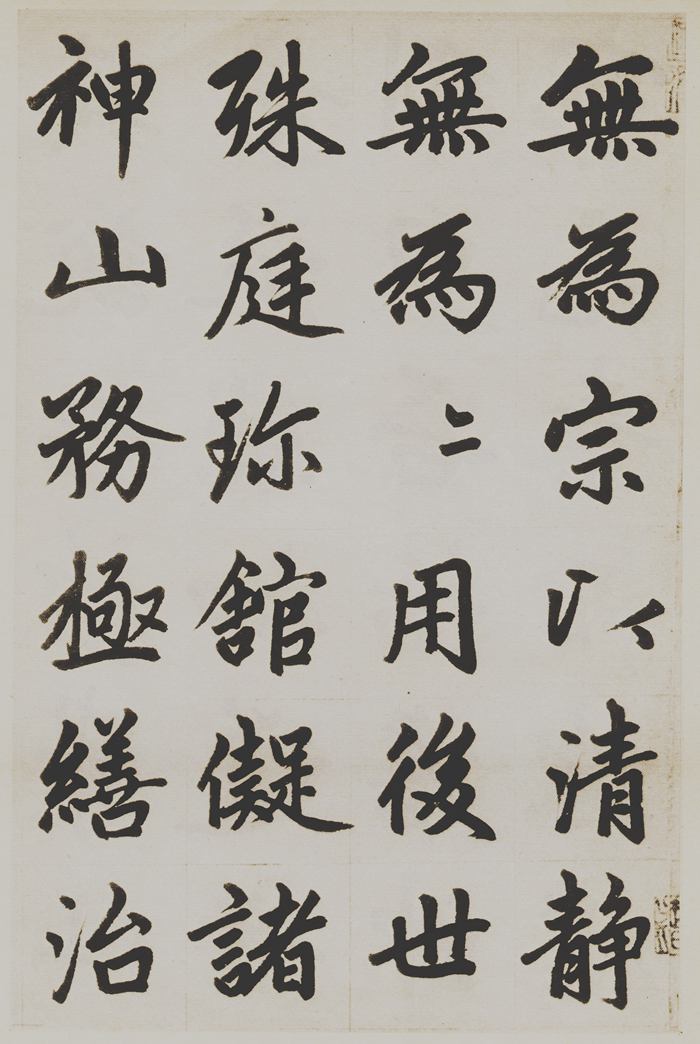 無為宗以清静
無為〻用後世
殊庭珎館儗諸
神山務極繕治